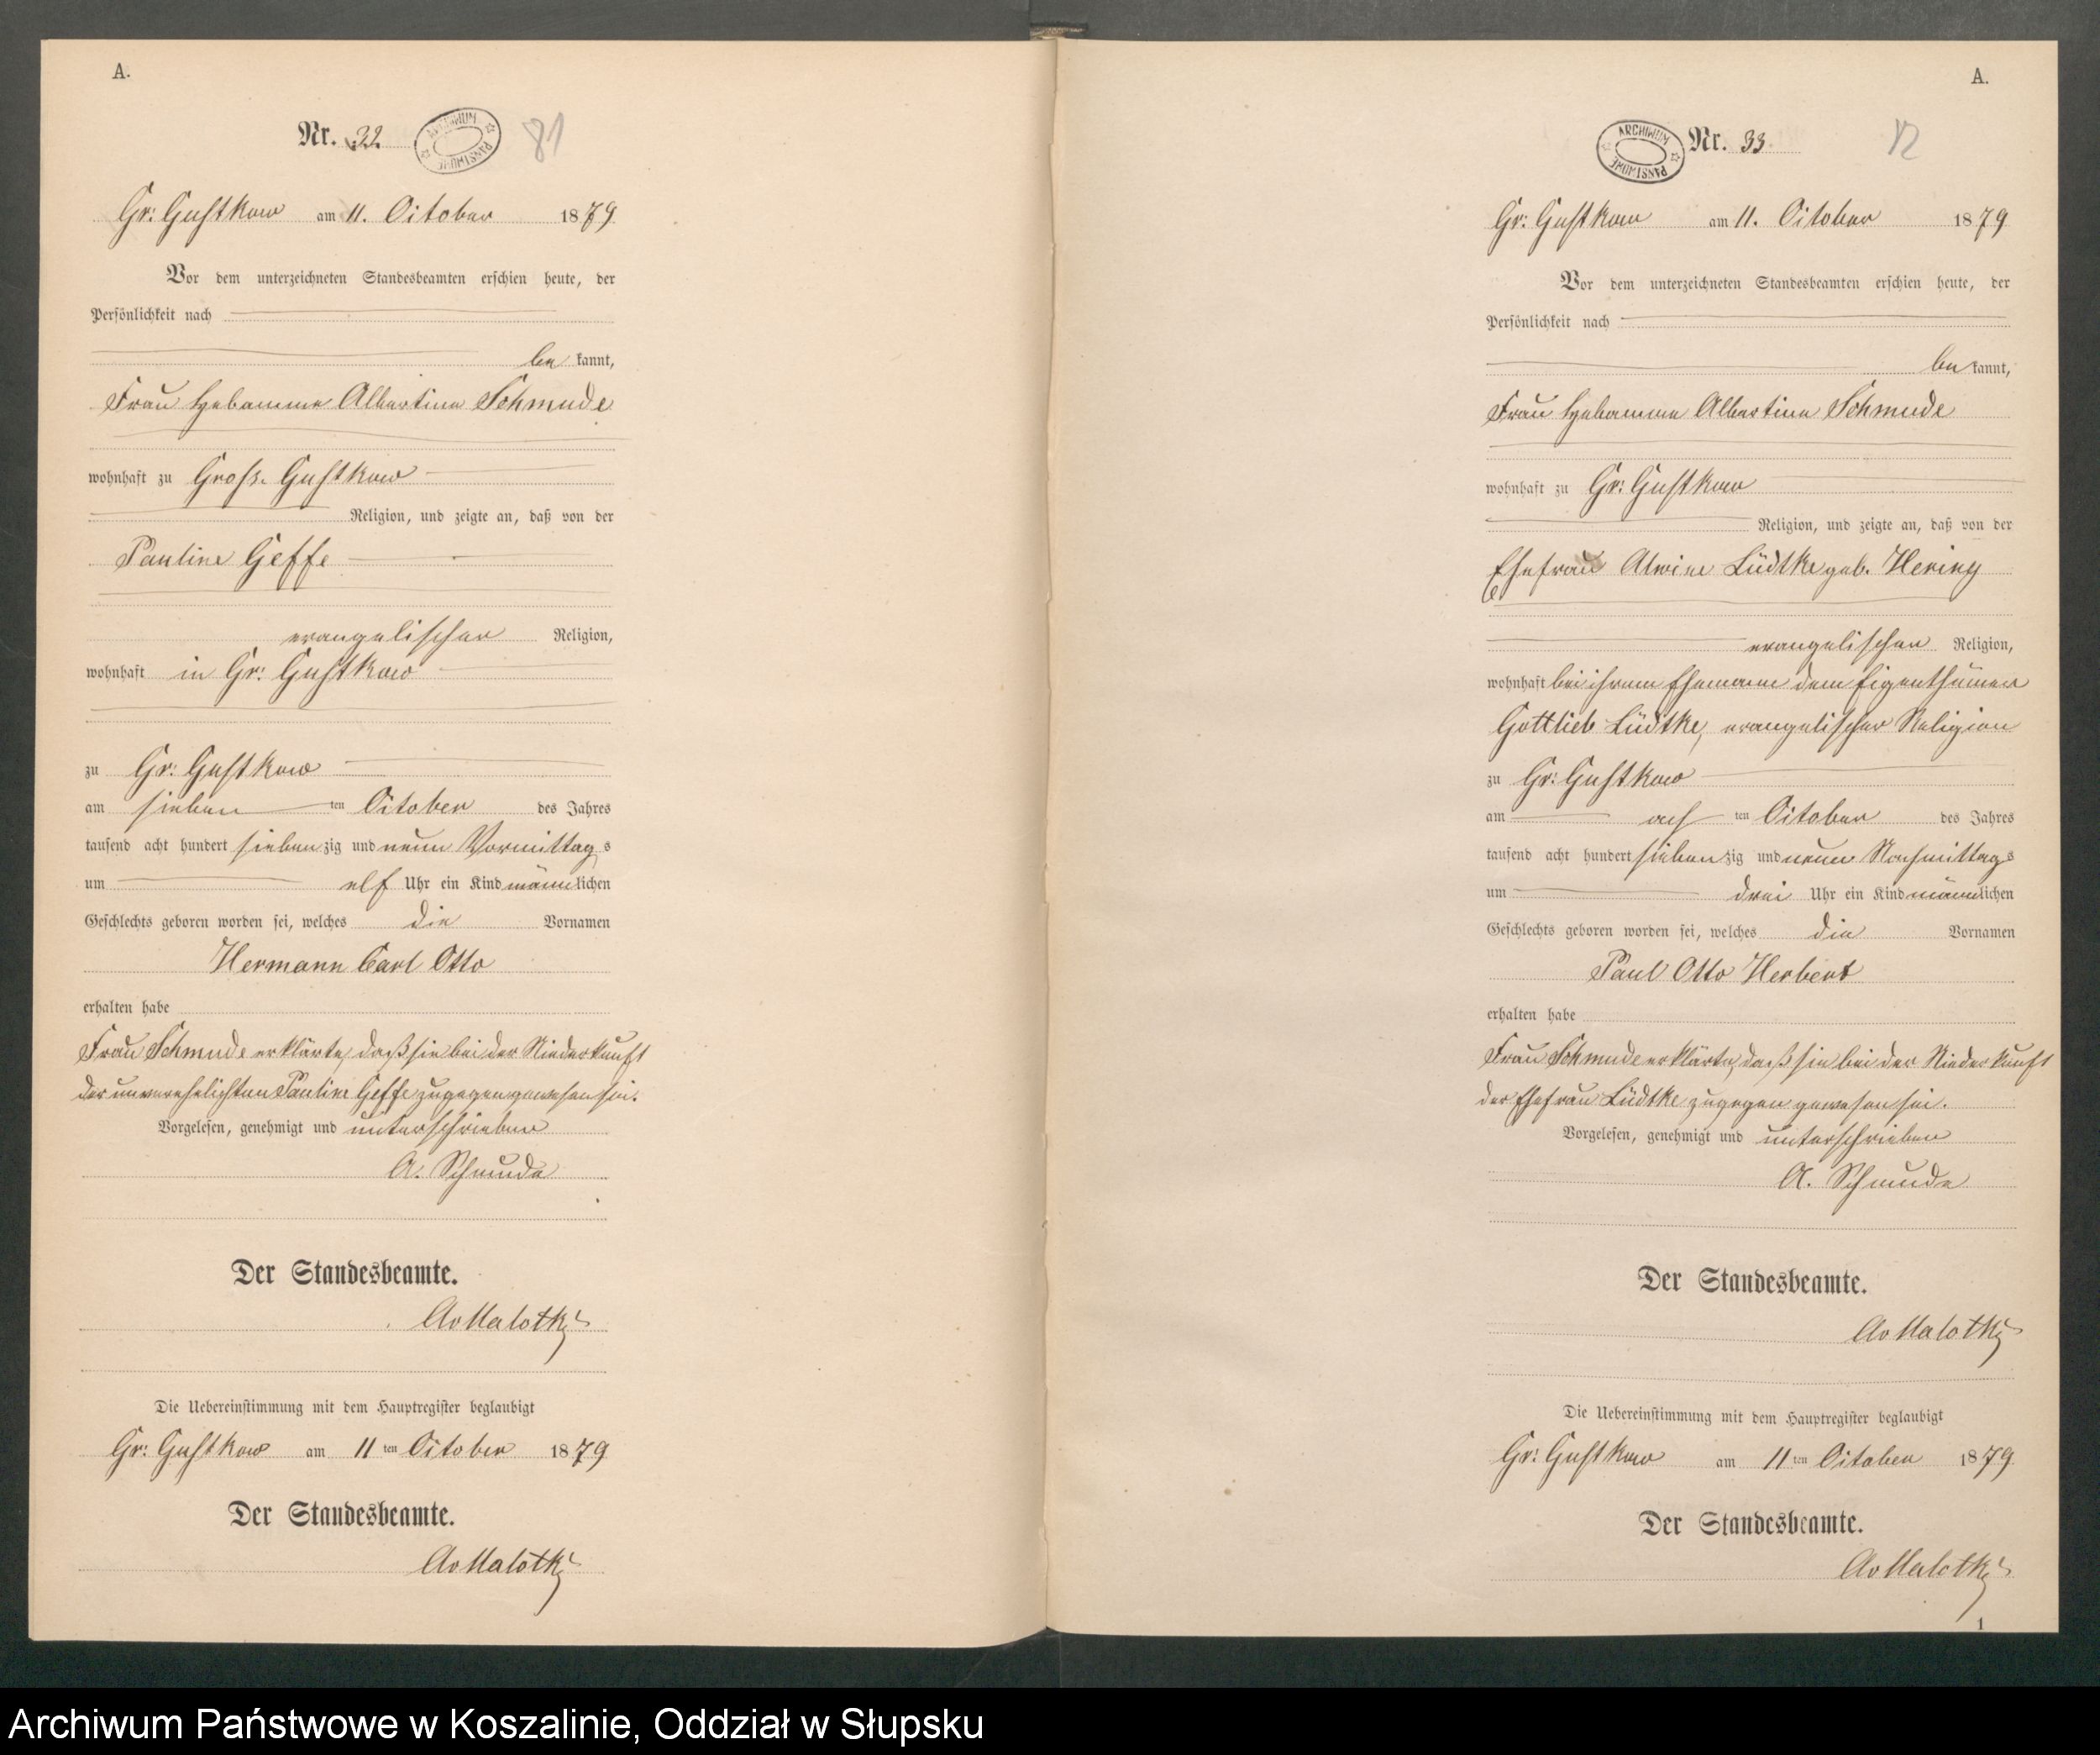 A.
Nr. 32.
ARCHIWUM PAŃSTWOWE
81
Gr: Gustkow am 11. October 1879
Vor dem unterzeichneten Standesbeamten erschien heute, der
Persönlichkeit nach
be kannt,
Frau Hebamme Albertine Schmude
wohnhaft zu Gross. Gustkow
Religion, und zeigte an, daß von der
Pauline Geffe
evangelischer Religion,
wohnhaft in Gr: Gustkow
zu Gr: Gustkow
am sieben ten October des Jahres
tausend acht hundert sieben zig und neun Vormittag s
um elf Uhr ein Kind männlichen
Geschlechts geboren worden sei, welches die Vornamen
Hermann Carl Otto
erhalten habe
Frau Schmude erklärte, daß sie bei der Niederkunft
der unverehelichten Pauline Geffe zugegen gewesen sei.
Vorgelesen, genehmigt und unterschrieben
A. Schmude
Der Standesbeamte.
AvMalotki
Die Uebereinstimmung mit dem Hauptregister beglaubigt
Gr: Gustkow am 11 ten October 1879
Der Standesbeamte.
AvMalotki
A.
ARCHIWUM PAŃSTWOWE
Nr. 33
Gr: Gustkow am 11. October 1879
Vor dem unterzeichneten Standesbeamten erschien heute, der
Persönlichkeit nach
be kannt,
Frau Hebamme Albertine Schmude
wohnhaft zu Gr: Gustkow
Religion, und zeigte an, daß von der
Ehefrau Alwine Lüdtke geb. Hering
evangelischer Religion,
wohnhaft bei ihrem Ehemanne dem Eigenthümer
Gottlieb Lüdtke, evangelischer Religion
zu Gr: Gustkow
am ach ten October des Jahres
tausend acht hundert sieben zig und neun Nachmittag s
um drei Uhr ein Kind männlichen
Geschlechts geboren worden sei, welches die Vornamen
Paul Otto Herbert
erhalten habe
Frau Schmude erklärte, daß sie bei der Niederkunft
der Ehefrau Lüdtke zugegen gewesen sei.
Vorgelesen, genehmigt und unterschrieben
A. Schmude
Der Standesbeamte.
AvMalotki
Die Uebereinstimmung mit dem Hauptregister beglaubigt
Gr: Gustkow am 11 ten October 1879
Der Standesbeamte.
AvMalotki
1
Archiwum Państwowe w Koszalinie, Oddział w Słupsku